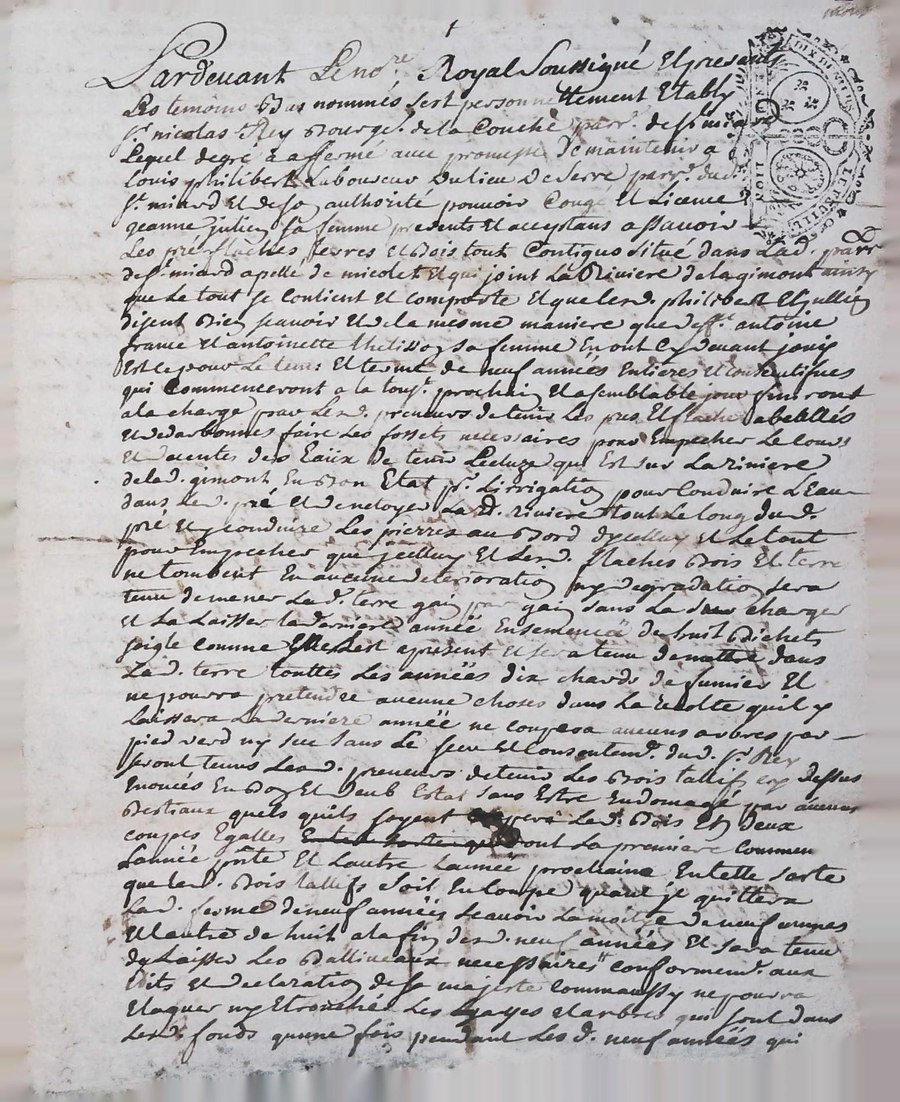 Pardevant Le no.re Royal Soussigné Et presents
Les témoins Bas nommés sert personnettement Etably
Sr. nicolas Rey Bourg. de la Couche parr. de St. miard
Lequel de gré a affermé avec promesse de maintenir a
Louis philibert Laboureur du lieu de Serre parr. dud.
St. miard Et de Son authorité pouvoir Congé Et Licence
jeanne julien Sa femme presents Et acceptans assavoir
Les prés flaches terres et Bois tout Contigus Situé dans Lad. parr.
de St. miard apellé de micolet Et qui joint La Riviere de la gimont ainsy
que Le tout Se Contient Et Comporte Et que Lesd. philibert Et jullien
disent Bien Scavoir Et de la mesme maniere que antoine
france Et antoinette Sa femme En ont Cy devant jouis
Est Ce pour Le tems Et terme de neuf années Entieres Et Consecutifves
qui Commenceront a la touss.t prochain Et a Semblable jour finiront
a la charge par Lesd. preneurs de tenir Les prés Et flaches
Et faire Les fossets necessaires pour Empecher Le Cours
Et des Eaüx de tenir Lecluze qui Est Sur La riviere
de lad. gimont En Bon Etat pr. Lirrigation pour Conduire Leau
dans Led. pré Et de netoyer La d. riviere tout Le long dud.
pré Et y Conduire Les pierres au Bord dycelluy Et Le tout
pour Empecher que jcelluy Et Lesd. flaches Bois Et terre
ne tombent En aucune deterioration ny degradation Sera
tenu de mener Lad. terre gain par gain Sans La Sur charger
Et La Laisser La derniere année Ensemencée de huit Bichets
Seigle Comme Elle Lest apresent Et Sera tenu de mettre dans
Lad. terre touttes Les années dix chards de fumier Et
ne pourra pretendre aucune choses dans La Recolte quil y
Laissera La derniere année ne coupera aucuns arbres par
pied verd ny Sec Sans Le Sceu Et Consentemt. dud. Sr. Rey
Seront tenus Lesd. preneurs de tenir Les Bois tallifs cy dessus
Enoncés En Bon Et deub Estat Sans Estre Endomagé par aucuns
Bestiaux quels quils Soyent Couppera Led. Bois En deux
coupes Egalles dont La premiere Commen
Lannée pnte Et Lautre Lannée prochaine En telle Sorte
que Led. Bois tallifs Soit En Coupe quand je quittera
Lad. ferme de neuf années Scavoir La moitié de neuf années
Et Lautre de huit a la fin desd. neuf années Et Sera tenu
dy Laisser Les Balliveaux necessaires conformemt. aux
Edits Et declaration de Sa majesté Comm'aussy ne pourra
Elaguer ny Etronché Les Et arbres qui Sont dans
Lesd. fonds qu'une fois pendant Les d. neuf années qui